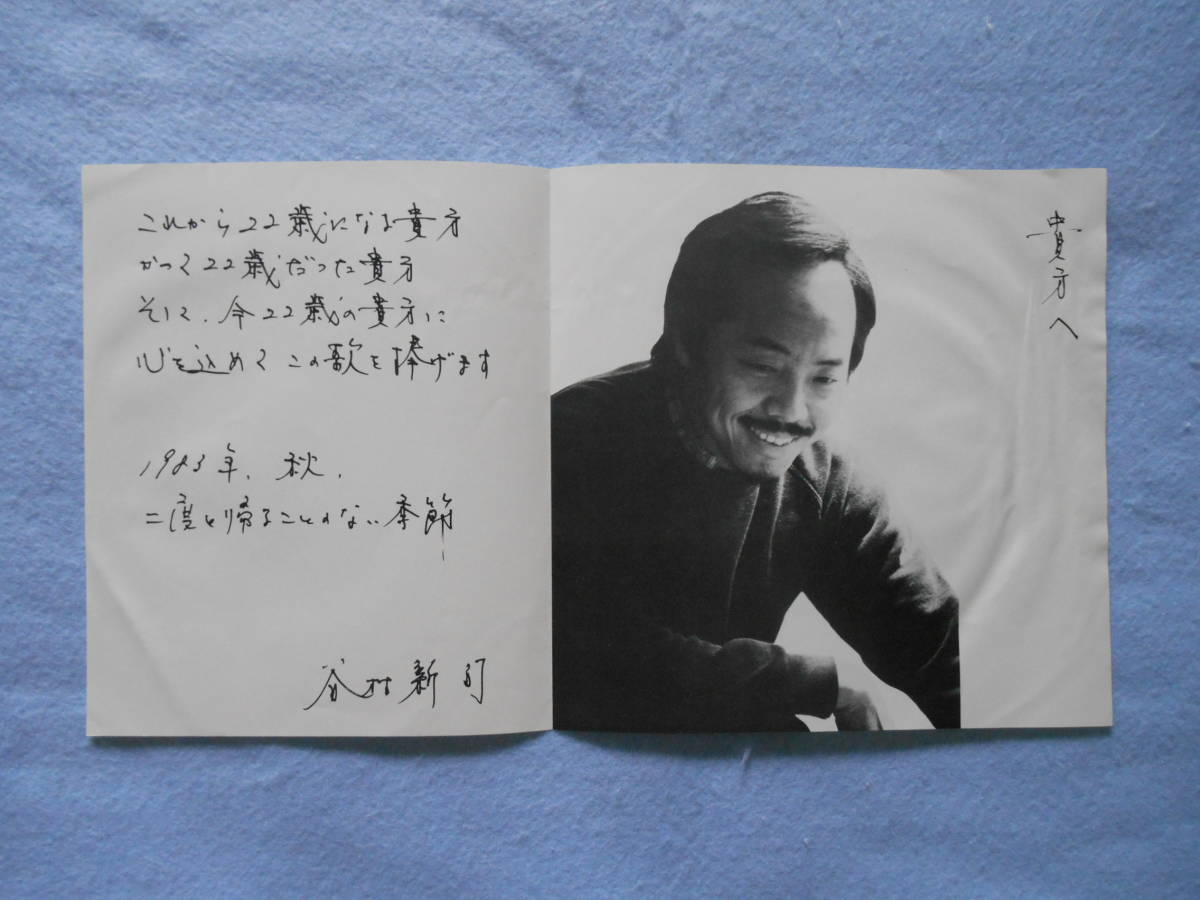 これから22歳になる貴方
かつて22歳だった貴方
そして、今22歳の貴方に
心を込めて この歌を捧げます
1983年、秋、
二度と帰ることのない季節
谷村新司
貴方へ